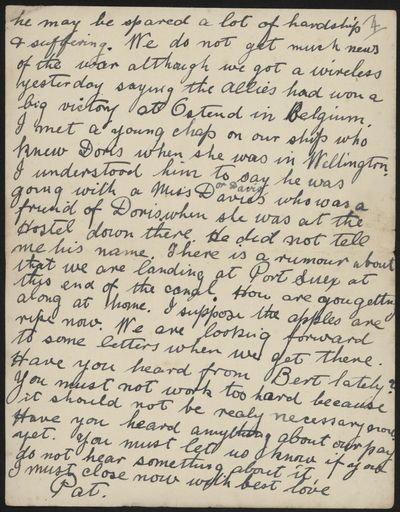 4
he may be spared a lot of hardship
& suffering. We do not get much news
of the war although we got a wireless
yesterday saying the allies had won a
big victory at Ostend in Belgium.
I met a young chap on our ship who
knew Doris when she was in Wellington.
I understood him to say he was
or David
going with a Miss Davies who was a
friend of Doris, when she was at the
Hostel down there. He did not tell
me his name. There is a rumour about
that we are landing at Port Suez at
this end of the canal. How are you getting
along at home. I suppose the apples are
ripe now. We are looking forward
to some letters when we get there.
Have you heard from Bert lately?
You must not work too hard because
it should not be realy necessary now
Have you heard anything about our pay
yet. You must let us know if you
do not hear something about it.
I must close now with best love
Pat.